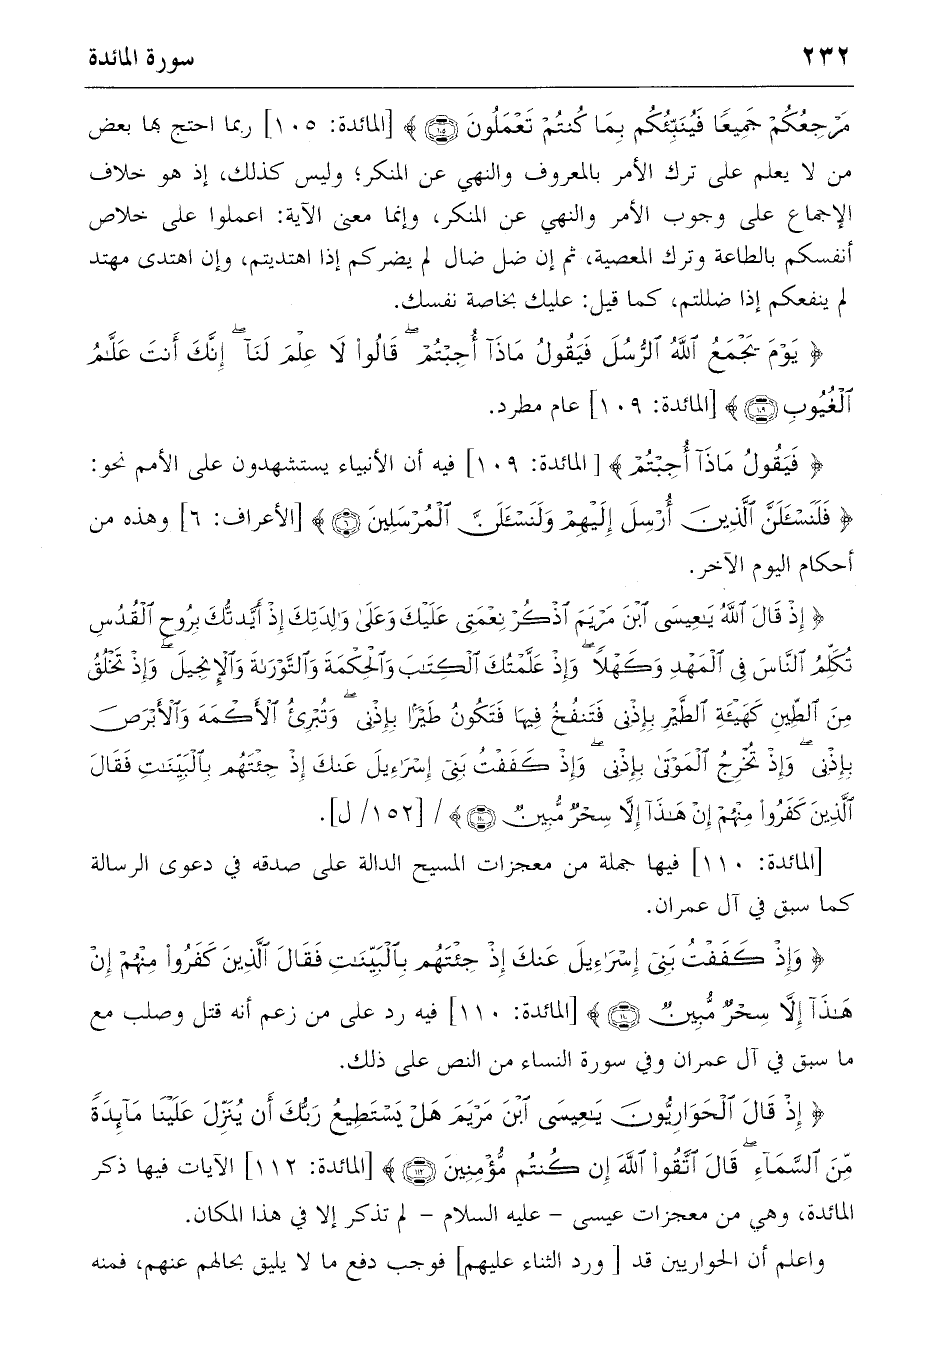 ٢٣٢ سورة المائدة
مَرْجِعُكُمْ جَمِيعًا فَيُنَبِّئُكُم بِمَا كُنتُمْ تَعْمَلُونَ ١٠٥ ﴾ [المائدة: ١٠٥] ربما احتج بها بعض
من لا يعلم على ترك الأمر بالمعروف والنهي عن المنكر؛ وليس كذلك، إذ هو خلاف
الإجماع على وجوب الأمر والنهي عن المنكر، وإنما معنى الآية: اعملوا على خلاص
أنفسكم بالطاعة وترك المعصية، ثم إن ضل ضال لم يضركم إذا اهتديتم، وإن اهتدى مهتد
لم ينفعكم إذا ضللتم، كما قيل: عليك بخاصة نفسك.
﴿ يَوْمَ يَجْمَعُ ٱللَّهُ ٱلرُّسُلَ فَيَقُولُ مَاذَآ أُجِبْتُمْ ۖ قَالُوا۟ لَا عِلْمَ لَنَآ ۖ إِنَّكَ أَنتَ عَلَّٰمُ
ٱلْغُيُوبِ ١٠٩ ﴾ [المائدة: ١٠٩] عام مطرد.
﴿ فَيَقُولُ مَاذَآ أُجِبْتُمْ ﴾ [المائدة: ١٠٩] فيه أن الأنبياء يستشهدون على الأمم نحو:
﴿ فَلَنَسْـَٔلَنَّ ٱلَّذِينَ أُرْسِلَ إِلَيْهِمْ وَلَنَسْـَٔلَنَّ ٱلْمُرْسَلِينَ ٦ ﴾ [الأعراف: ٦] وهذه من
أحكام اليوم الآخر.
﴿ إِذْ قَالَ ٱللَّهُ يَٰعِيسَى ٱبْنَ مَرْيَمَ ٱذْكُرْ نِعْمَتِى عَلَيْكَ وَعَلَىٰ وَٰلِدَتِكَ إِذْ أَيَّدتُّكَ بِرُوحِ ٱلْقُدُسِ
تُكَلِّمُ ٱلنَّاسَ فِى ٱلْمَهْدِ وَكَهْلًا ۖ وَإِذْ عَلَّمْتُكَ ٱلْكِتَٰبَ وَٱلْحِكْمَةَ وَٱلتَّوْرَىٰةَ وَٱلْإِنجِيلَ ۖ وَإِذْ تَخْلُقُ
مِنَ ٱلطِّينِ كَهَيْـَٔةِ ٱلطَّيْرِ بِإِذْنِى فَتَنفُخُ فِيهَا فَتَكُونُ طَيْرًۢا بِإِذْنِى ۖ وَتُبْرِئُ ٱلْأَكْمَهَ وَٱلْأَبْرَصَ
بِإِذْنِى ۖ وَإِذْ تُخْرِجُ ٱلْمَوْتَىٰ بِإِذْنِى ۖ وَإِذْ كَفَفْتُ بَنِىٓ إِسْرَٰٓءِيلَ عَنكَ إِذْ جِئْتَهُم بِٱلْبَيِّنَٰتِ فَقَالَ
ٱلَّذِينَ كَفَرُوا۟ مِنْهُمْ إِنْ هَٰذَآ إِلَّا سِحْرٌ مُّبِينٌ ١١٠ ﴾ / [١٥٢/ ل].
[المائدة: ١١٠] فيها جملة من معجزات المسيح الدالة على صدقه في دعوى الرسالة
كما سبق في آل عمران.
﴿ وَإِذْ كَفَفْتُ بَنِىٓ إِسْرَٰٓءِيلَ عَنكَ إِذْ جِئْتَهُم بِٱلْبَيِّنَٰتِ فَقَالَ ٱلَّذِينَ كَفَرُوا۟ مِنْهُمْ إِنْ
هَٰذَآ إِلَّا سِحْرٌ مُّبِينٌ ١١٠ ﴾ [المائدة: ١١٠] فيه رد على من زعم أنه قتل وصلب مع
ما سبق في آل عمران وفي سورة النساء من النص على ذلك.
﴿ إِذْ قَالَ ٱلْحَوَارِيُّونَ يَٰعِيسَى ٱبْنَ مَرْيَمَ هَلْ يَسْتَطِيعُ رَبُّكَ أَن يُنَزِّلَ عَلَيْنَا مَآئِدَةً
مِّنَ ٱلسَّمَآءِ ۖ قَالَ ٱتَّقُوا۟ ٱللَّهَ إِن كُنتُم مُّؤْمِنِينَ ١١٢ ﴾ [المائدة: ١١٢] الآيات فيها ذكر
المائدة، وهي من معجزات عيسى – عليه السلام – لم تذكر إلا في هذا المكان.
واعلم أن الحواريين قد [ ورد الثناء عليهم] فوجب دفع ما لا يليق بحالهم عنهم، فمنه